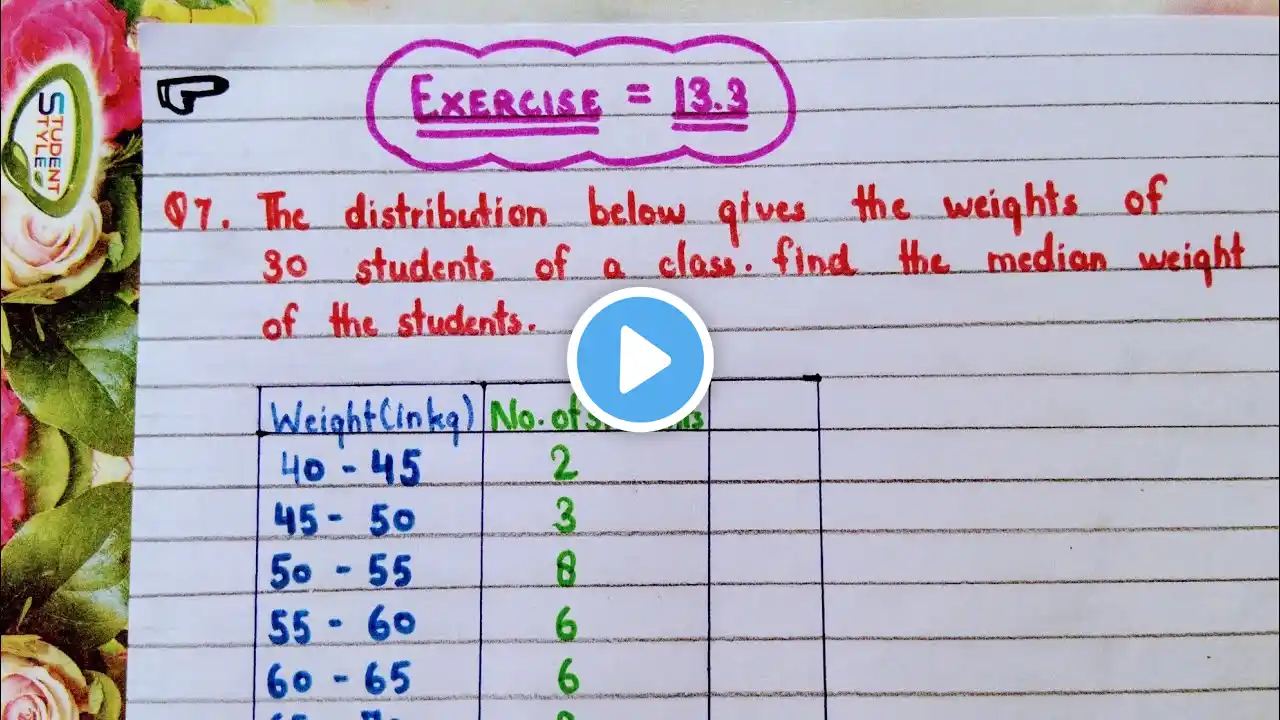 STUDENT STYLE
EXERCISE = 13.3
Q7. The distribution below gives the weights of
30 students of a class. find the median weight
of the students.
Weight(in kg) No. of
40 - 45 2
45 - 50 3
50 - 55 8
55 - 60 6
60 - 65 6